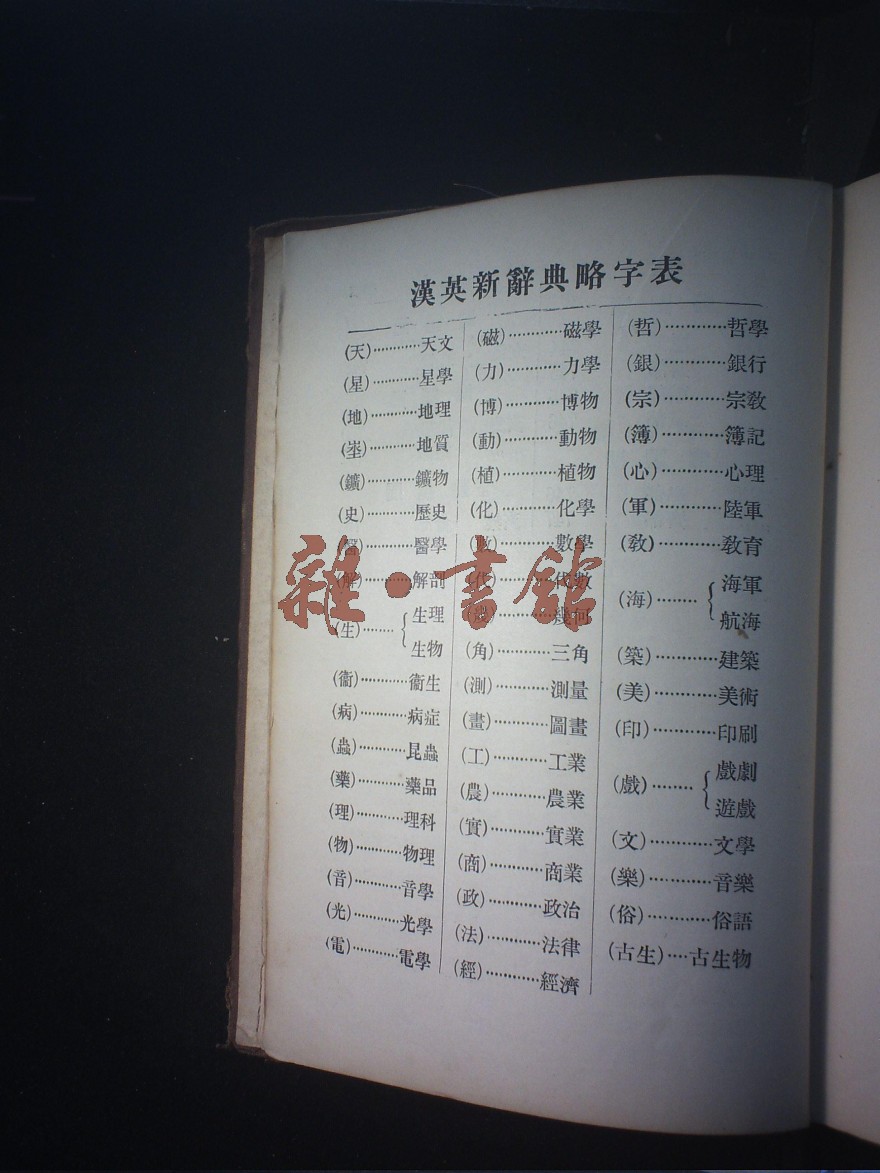 漢英新辭典略字表
(天)…………天文
(星)…………星學
(地)…………地理
(坔)…………地質
(鑛)…………鑛物
(史)…………歷史
(醫)…………醫學
(解)…………解剖
(生)………{生理
生物
(衞)…………衞生
(病)…………病症
(蟲)…………昆蟲
(藥)…………藥品
(理)…………理科
(物)…………物理
(音)…………音學
(光)…………光學
(電)…………電學
(磁)…………磁學
(力)…………力學
(博)…………博物
(動)…………動物
(植)…………植物
(化)…………化學
(數)…………數學
(代)…………代數
(幾)…………幾何
(角)…………三角
(測)…………測量
(畫)…………圖畫
(工)…………工業
(農)…………農業
(實)…………實業
(商)…………商業
(政)…………政治
(法)…………法律
(經)…………經濟
(哲)…………哲學
(銀)…………銀行
(宗)…………宗敎
(簿)…………簿記
(心)…………心理
(軍)…………陸軍
(敎)…………敎育
(海)………{海軍
航海
(築)…………建築
(美)…………美術
(印)…………印刷
(戲)………{戲劇
遊戲
(文)…………文學
(樂)…………音樂
(俗)…………俗語
(古生)……古生物
雜·書館